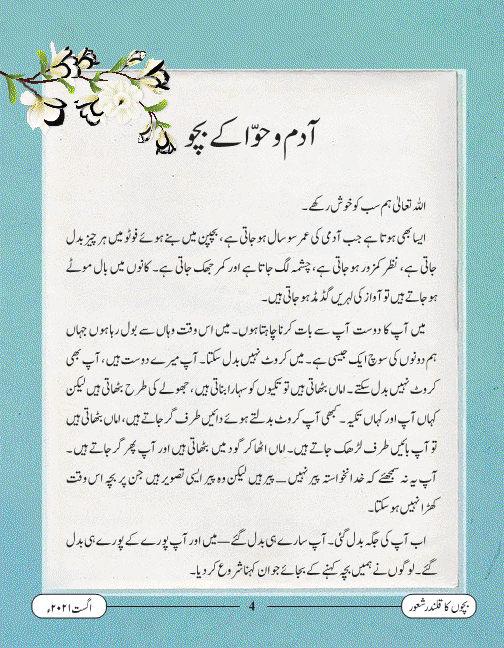 آدم و حوّا کے بچو
اللہ تعالیٰ ہم سب کو خوش رکھے۔
ایسا بھی ہوتا ہے جب آدمی کی عمر سو سال ہو جاتی ہے، بچپن میں بنے ہوئے فوٹو میں ہر چیز بدل
جاتی ہے، نظر کمزور ہو جاتی ہے، چشمہ لگ جاتا ہے اور کمر جھک جاتی ہے۔ کانوں میں بال موٹے
ہو جاتے ہیں تو آواز کی لہریں گڈمڈ ہو جاتی ہیں۔
میں آپ کا دوست آپ سے بات کرنا چاہتا ہوں۔ میں اس وقت وہاں سے بول رہا ہوں جہاں
ہم دونوں کی سوچ ایک جیسی ہے۔ میں کروٹ نہیں بدل سکتا۔ آپ میرے دوست ہیں، آپ بھی
کروٹ نہیں بدل سکتے۔ اماں بٹھاتی ہیں تو تکیوں کو سہارا بناتی ہیں، جھولے کی طرح بٹھاتی ہیں لیکن
کہاں آپ اور کہاں تکیہ۔ کبھی آپ کروٹ بدلتے ہوئے دائیں طرف گر جاتے ہیں، اماں بٹھاتی ہیں
تو آپ بائیں طرف لڑھک جاتے ہیں۔ اماں اٹھا کر گود میں بٹھاتی ہیں اور آپ پھر گر جاتے ہیں۔
آپ یہ نہ سمجھئے کہ خدانخواستہ پیر نہیں — پیر ہیں لیکن وہ پیر ایسی تصویر ہیں جن پر بچہ اس وقت
کھڑا نہیں ہو سکتا۔
اب آپ کی جگہ بدل گئی۔ آپ سارے ہی بدل گئے — میں اور آپ پورے کے پورے ہی بدل
گئے۔ لوگوں نے ہمیں بچہ کہنے کے بجائے جوان کہنا شروع کر دیا۔
بچوں کا قلندر شعور
4
اگست ۲۰۲۱ء